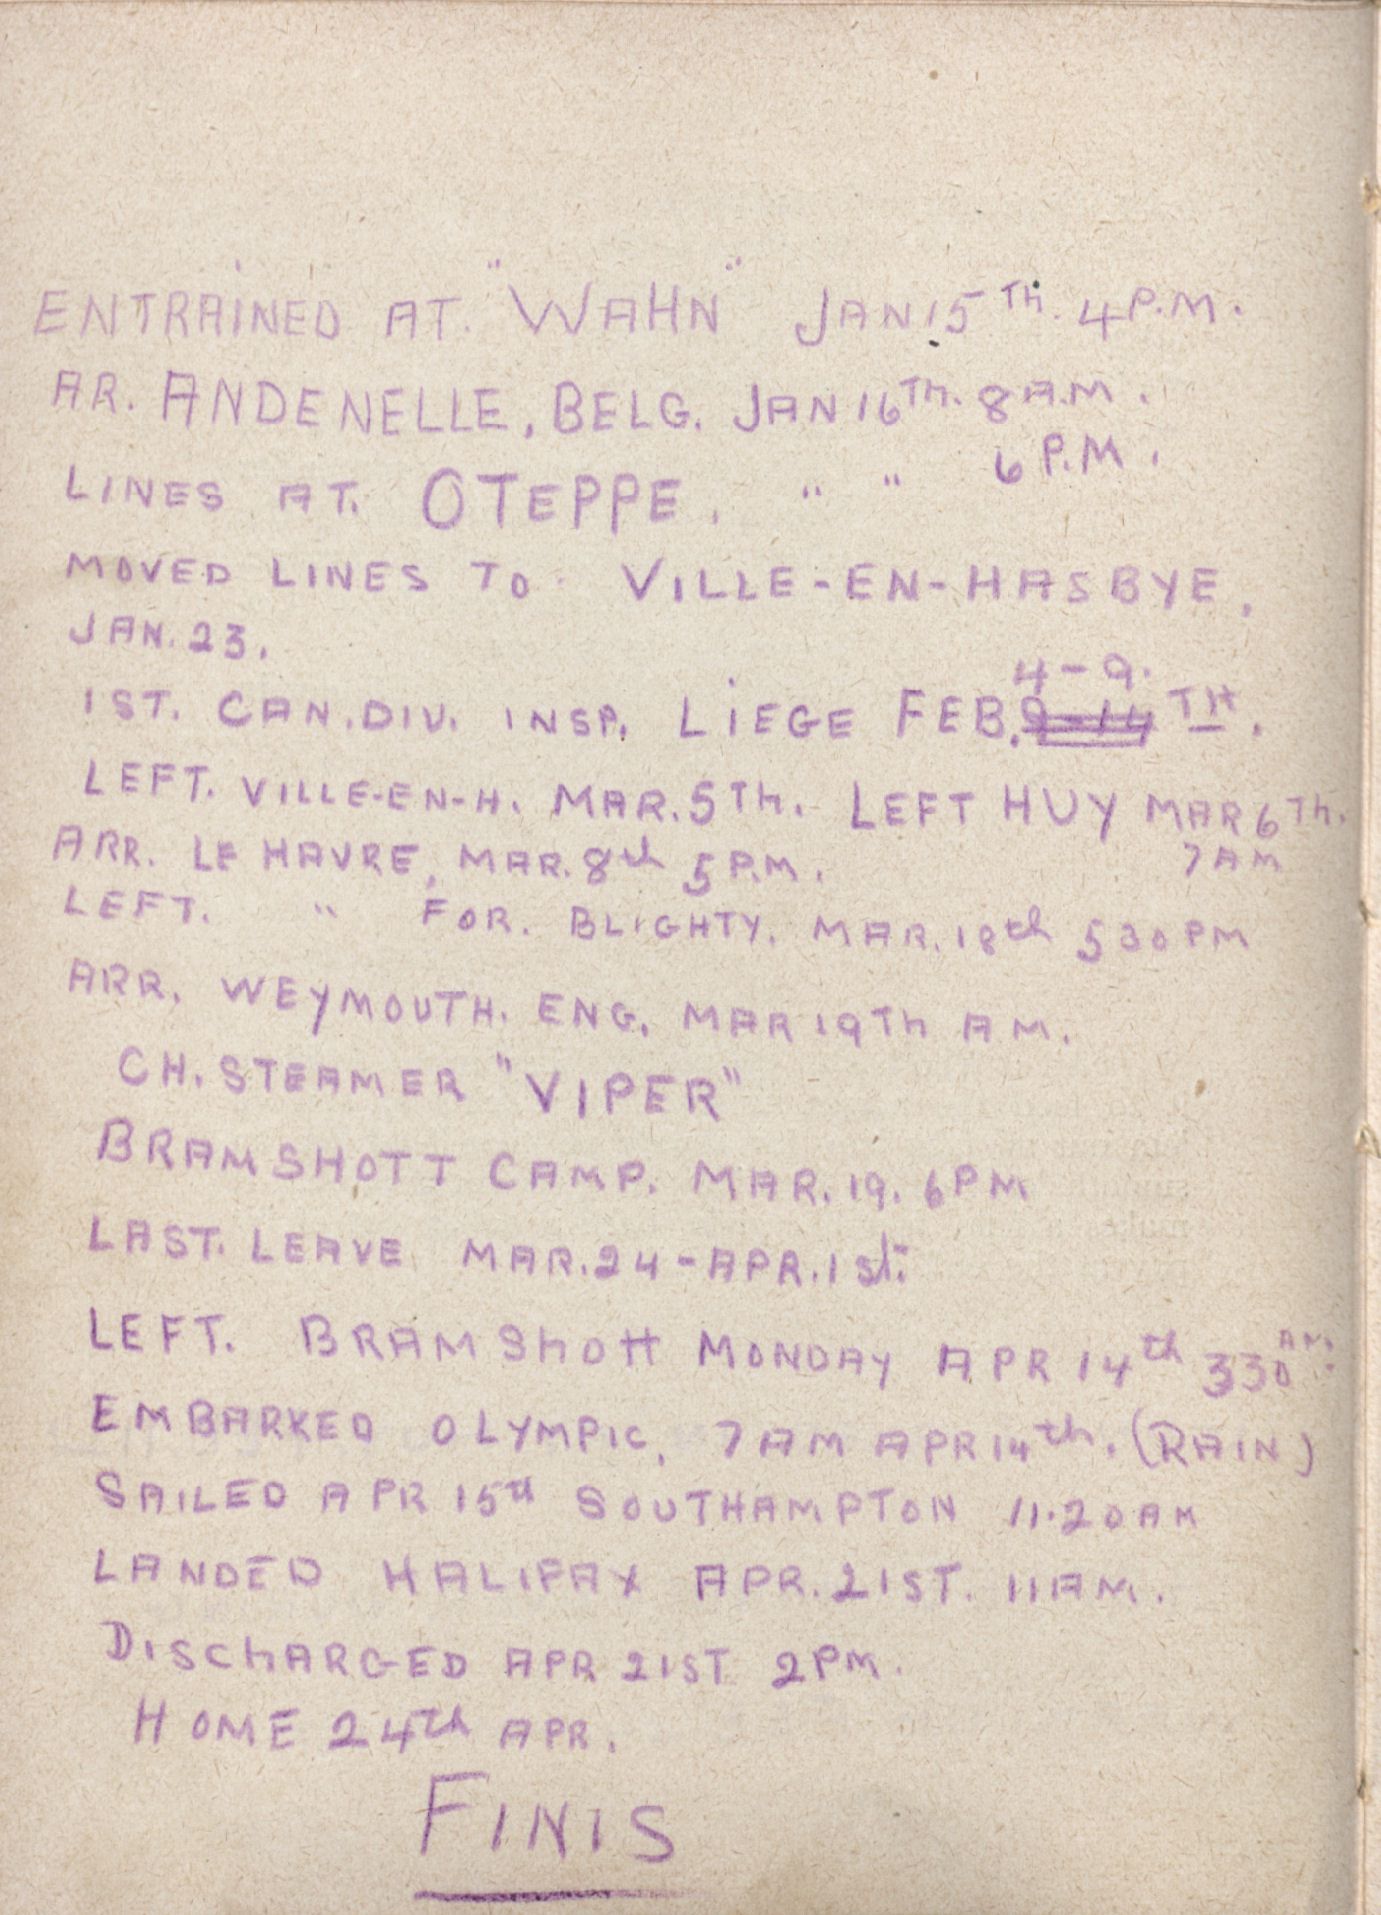 ENTRAINED AT. "WAHN" JAN 15TH. 4 P.M.
AR. ANDENELLE, BELG. JAN 16TH. 8 A.M.
LINES AT. OTEPPE. " " 6 P.M.
MOVED LINES TO VILLE-EN-HASBYE,
JAN. 23.
1ST. CAN. DIV. INSP. LIEGE FEB. 4-9. 9-14 TH.
LEFT. VILLE-EN-H. MAR. 5TH. LEFT HUY MAR 6TH.
7 AM
ARR. LE HAVRE, MAR. 8th 5 P.M.
LEFT. " FOR. BLIGHTY. MAR. 18th 530 PM
ARR. WEYMOUTH. ENG. MAR 19TH AM.
CH. STEAMER "VIPER"
BRAMSHOTT CAMP. MAR. 19. 6 PM
LAST. LEAVE MAR. 24 - APR. 1st.
LEFT. BRAMSHOTT MONDAY APR 14th 330 AM.
EMBARKED OLYMPIC, 7 AM APR 14th. (RAIN)
SAILED APR 15th SOUTHAMPTON 11.20 AM
LANDED HALIFAX APR. 21ST. 11 AM.
DISCHARGED APR 21ST 2 PM.
HOME 24th APR.
FINIS